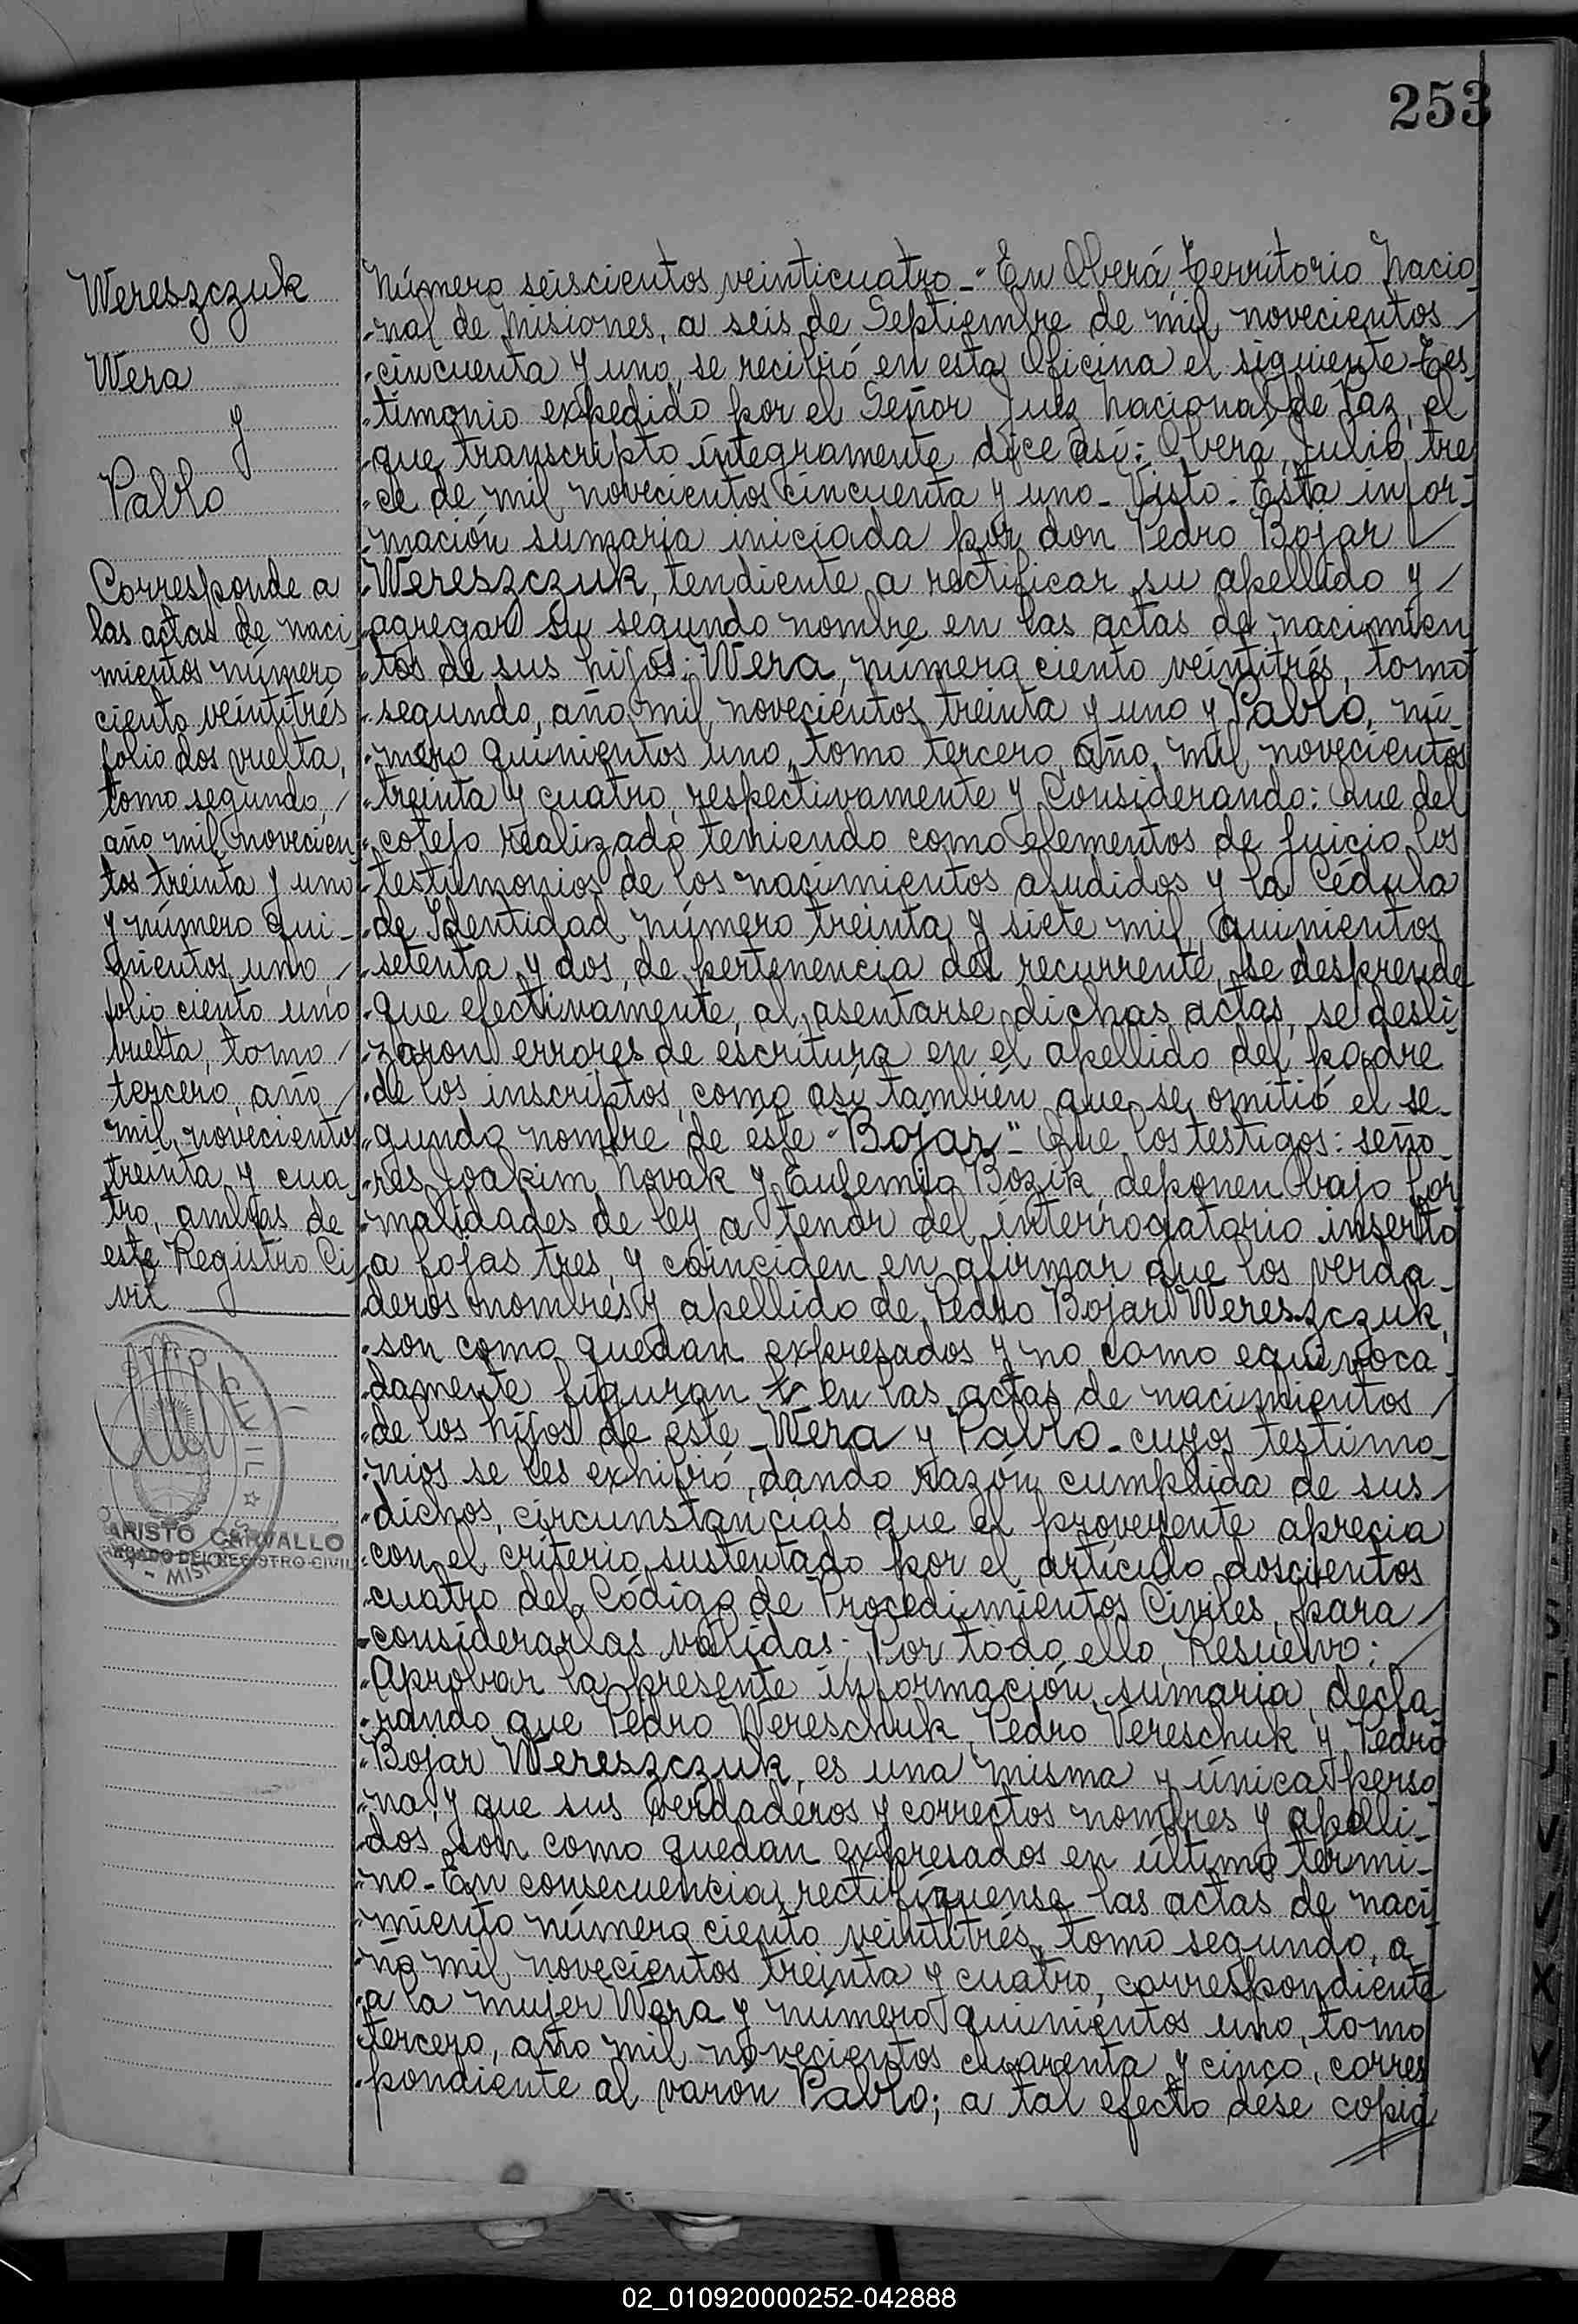 253
Wereszczuk
Wera
y
Pablo
Corresponde a
las actas de naci
mientos número
ciento veintitrés
folio dos vuelta,
tomo segundo,
año mil novecien
tos treinta y uno
y número qui-
nientos uno,
folio ciento uno
vuelta, tomo
tercero, año
mil novecientos
treinta y cua
tro, ambas de
este Registro Ci
vil
ARISTO CARVALLO
DEL REGISTRO CIVIL
MISIONES
Número seiscientos veinticuatro - En Oberá, Territorio Nacio
nal de Misiones, a seis de Septiembre de mil novecientos
cincuenta y uno, se recibió en esta Oficina el siguiente Tes
timonio expedido por el Señor Juez Nacional de Paz, el
que transcripto íntegramente dice así: Oberá, Julio, tre
ce de mil novecientos cincuenta y uno - Visto: Esta infor-
mación sumaria iniciada por don Pedro Bojar
Wereszczuk, tendiente a rectificar su apellido y
agregar su segundo nombre en las actas de nacimien
tos de sus hijos: Wera, número ciento veintitrés, tomo
segundo, año mil novecientos treinta y uno y Pablo, nú-
mero quinientos uno, tomo tercero, año mil novecientos
treinta y cuatro, respectivamente y Considerando: Que del
cotejo realizado teniendo como elementos de juicio los
testimonios de los nacimientos aludidos y la Cédula
de Identidad número treinta y siete mil quinientos
setenta y dos, de pertenencia del recurrente, se desprende
que efectivamente, al asentarse dichas actas, se desli
zaron errores de escritura en el apellido del padre
de los inscriptos, como así también que se omitió el se-
gundo nombre de éste "Bojar" - Que los testigos: seño-
res Joakim Novak y Eufemia Bozik, deponen bajo for
malidades de ley a tenor del interrogatorio inserto
a fojas tres, y coinciden en afirmar que los verda-
deros nombres y apellido de Pedro Bojar Wereszczuk,
son como quedan expresados y no como equivoca
damente figuran en las actas de nacimientos
de los hijos de éste - Wera y Pablo - cuyos testimo-
nios se les exhibió, dando razón cumplida de sus
dichos, circunstancias que el proveyente aprecia
con el criterio sustentado por el artículo doscientos
cuatro del Código de Procedimientos Civiles, para
considerarlas válidas; Por todo ello, Resuelvo:
Aprobar la presente información sumaria, decla
rando que Pedro Wereschuk, Pedro Vereschuk y Pedro
Bojar Wereszczuk, es una misma y única perso
na, y que sus verdaderos y correctos nombres y apelli-
dos son como quedan expresados en último térmi-
no - En consecuencia, rectifíquense las actas de naci
miento número ciento veintitrés, tomo segundo, a
ño mil novecientos treinta y cuatro, correspondiente
a la mujer Wera y número quinientos uno, tomo
tercero, año mil novecientos cuarenta y cinco, corres
pondiente al varón Pablo; a tal efecto dése copia
02_010920000252-042888